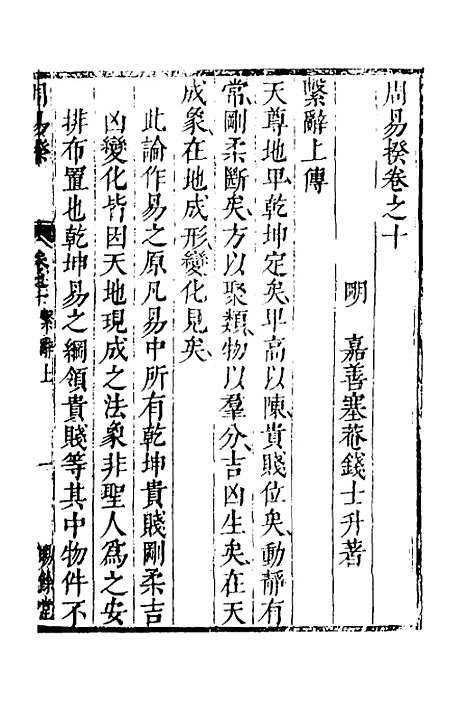 周易揆卷之十
明　嘉善塞菴錢士升著
繫辭上傳
天尊地卑乾坤定矣卑高以陳貴賤位矣動靜有
常剛柔斷矣方以聚類物以羣分吉凶生矣在天
成象在地成形變化見矣
此論作易之原凡易中所有乾坤貴賤剛柔吉
凶變化皆因天地現成之法象非聖人爲之安
排布置也乾坤易之綱領貴賤等其中物件不
周易揆
繫辭上
一
賜餘堂